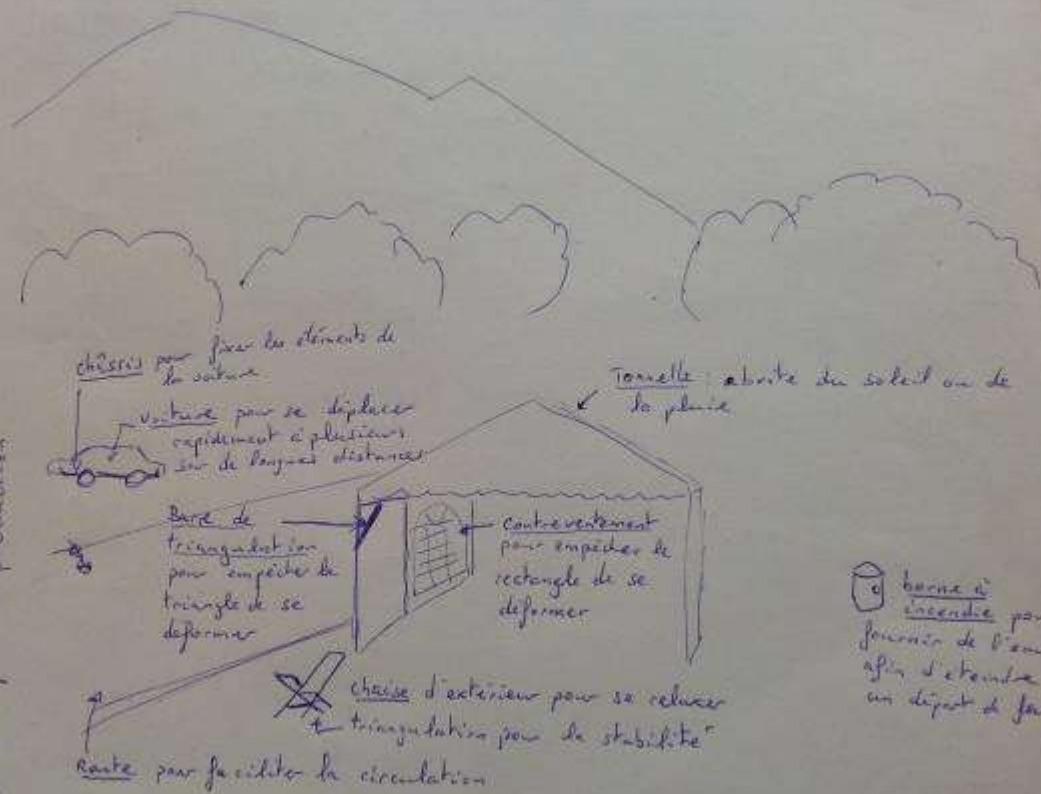 châssis pour fixer les éléments de
la voiture
voiture pour se déplacer
rapidement à plusieurs
sur de longues distances
Tonnelle : abrite du soleil ou de
la pluie
Barre de
triangulation
pour empêcher le
triangle de se
déformer
contreventement
pour empêcher le
rectangle de se
déformer
borne à
incendie pour
fournir de l'eau
afin d'éteindre
un départ de feu
chaise d'extérieur pour se relaxer
triangulation pour la stabilité
Route pour faciliter la circulation